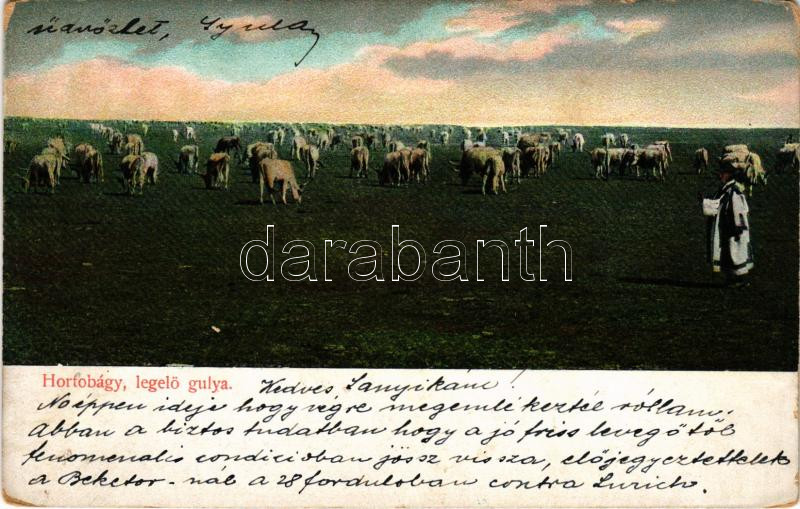 üdvözlet, Gyula
darabanth
Hortobágy, legelő gulya.
Kedves Sanyikám!
No éppen ideje hogy végre megemlékeztél róllam.
abban a biztos tudatban hogy a jó friss levegőtől
fenomenalis condicioban jössz vissza, előjegyeztettelek
a Beketor-nál a 28 forduloban contra Lurich.